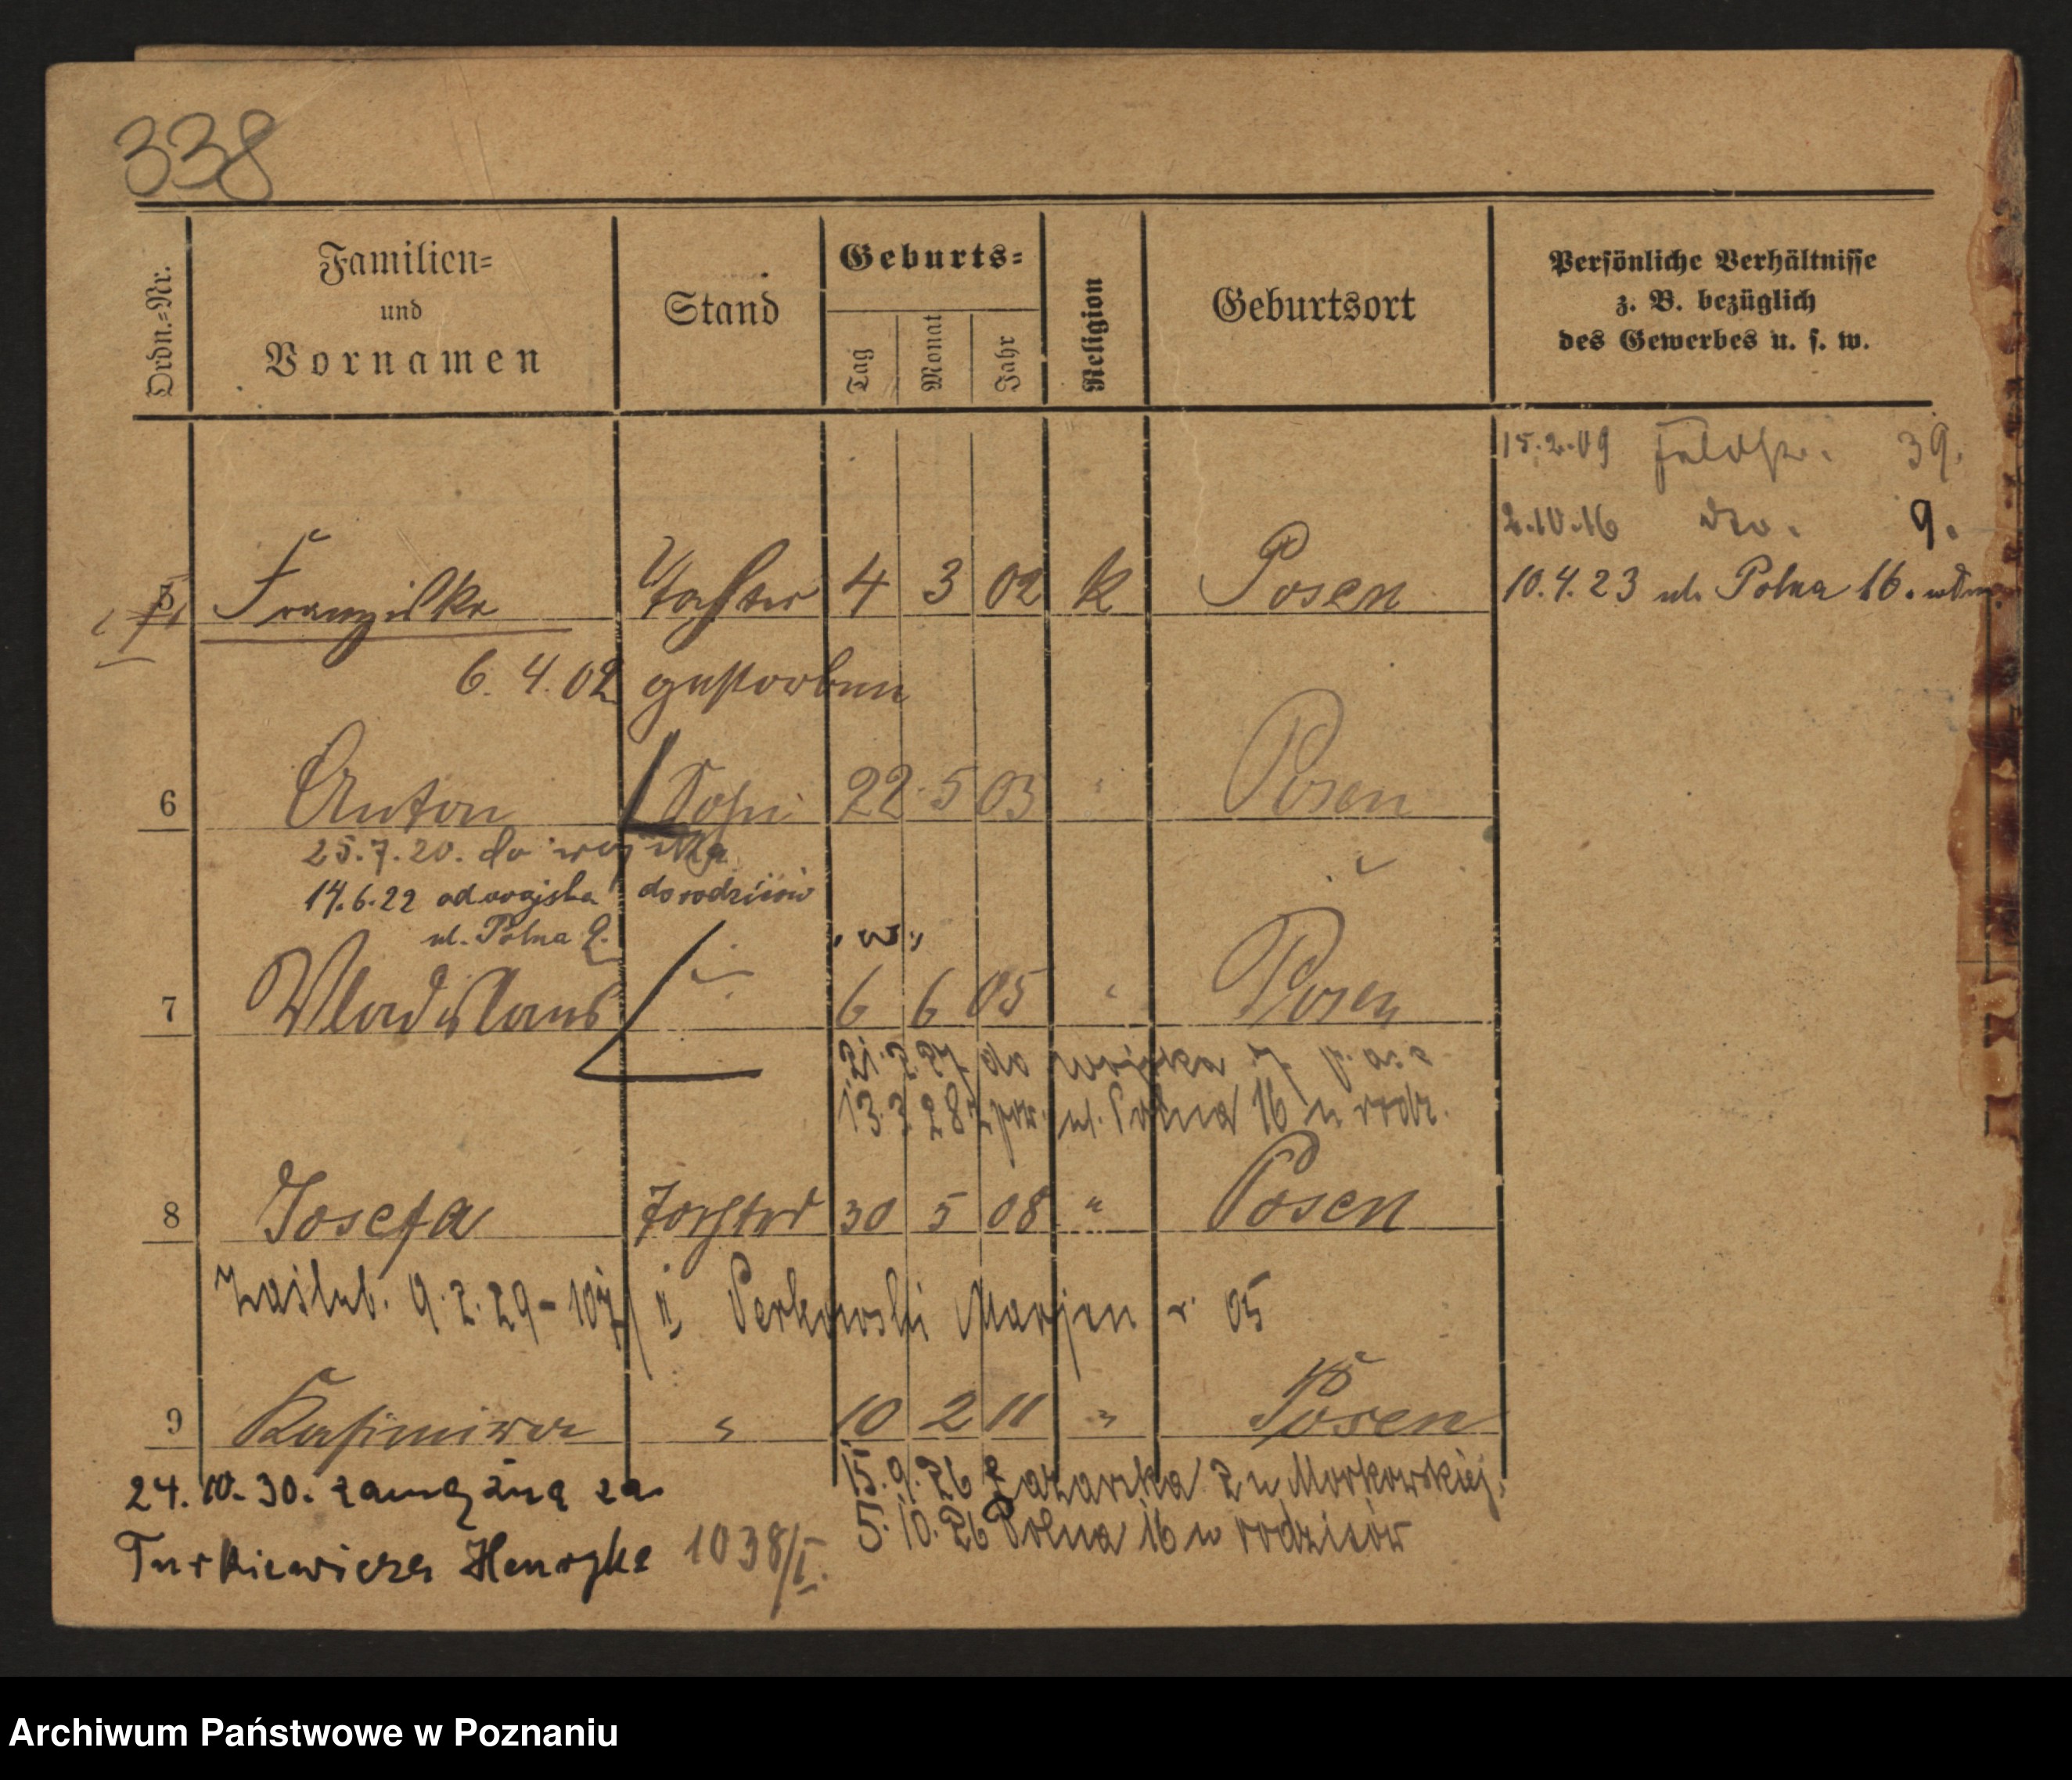 338
Ordn.=Nr.
Familien=
und
Vornamen
Stand
Geburts=
Tag
Monat
Jahr
Religion
Geburtsort
Persönliche Verhältnisse
z. B. bezüglich
des Gewerbes u. s. w.
15.2.09 Feldstr. 39.
2.10.16 dto. 9.
5 Franziska Tochter 4 3 02 k Posen
10.4.23 ul. Polna 16.
6.4.02 gestorben
6 Anton Sohn 22 5 03 " Posen
25.7.20. do wojska
14.6.22 od wojska do rodziców
ul. Polna 9.
"w"
7 Wladislaus " 6 6 05 " Posen
21.2.27 do wojska 7 p. a. c
13.3.28 z ul. Polna 16 u rodz.
8 Josefa Tochter 30 5 08 " Posen
Zaślub. 9.2.29 - Perkowski Marjan r. 05
9 Kasimira " 10 2 11 " Posen
24.10.30. zamężna za
15.9.26 Łazarska 2 u Morkowskiej.
5.10.26 Polna 16 u rodziców
Turkiewicza Henryka 1038/I.
Archiwum Państwowe w Poznaniu